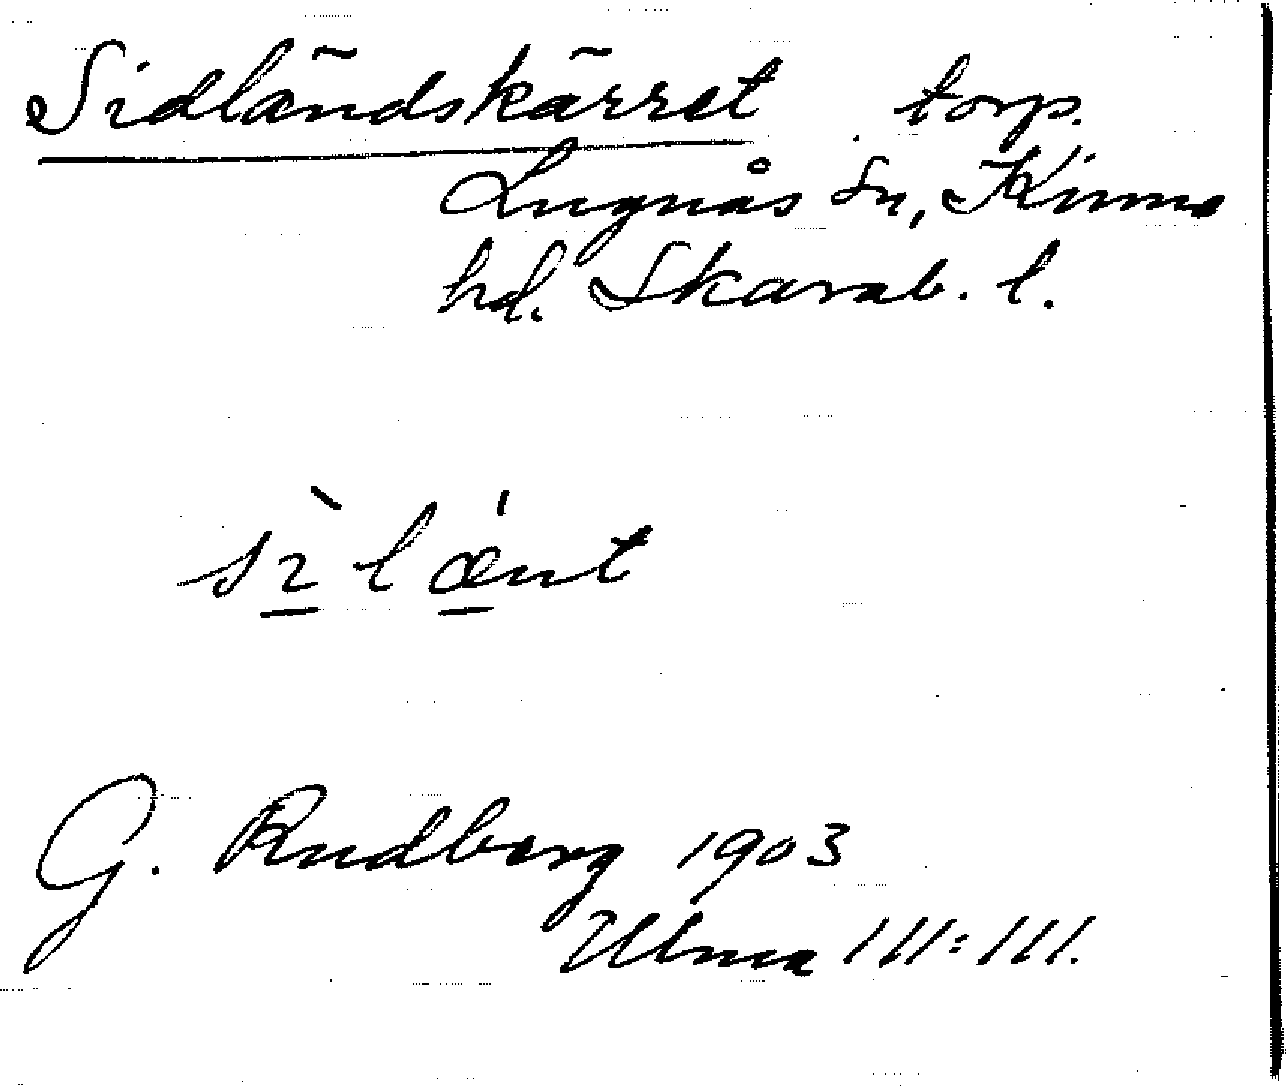 Sidländskärret torp.
Lugnås sn, Kinne
hd. Skarab. l.
sìlǽnt
G. Rudberg 1903
Ulma 111:111.